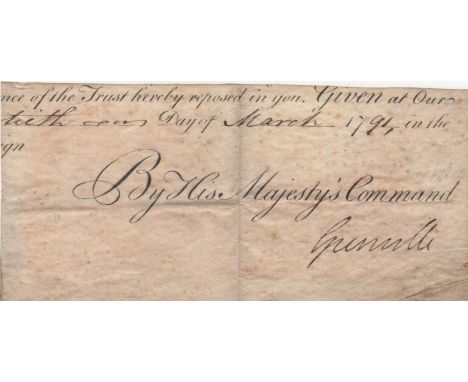 nce of the Trust hereby reposed in you. Given at Our
tieth Day of March 1791, in the
ign
By His Majesty's Command
Grenville